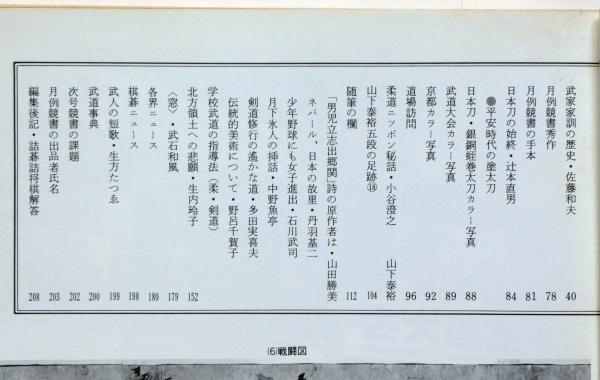 武家家訓の歴史・佐藤和夫 40
月例競書秀作 78
月例競書の手本 81
日本刀の始終・辻本直男 84
●平安時代の塗太刀
日本刀・銀銅蛭巻太刀カラー写真 88
武道大会カラー写真 89
京都カラー写真 92
道場訪問 96
柔道ニッポン秘話・小谷澄之 山下泰裕
山下泰裕五段の足跡⑱ 104
随筆の欄 112
「男児立志出郷関」詩の原作者は・山田勝美
ネパール、日本の故里・丹羽基二
少年野球にも女子進出・石川武司
月下氷人の挿話・中野魚亭
剣道修行の遙かな道・多田実喜夫
伝統的美術について・野呂千賀子
学校武道の指導法(柔・剣道)
北方領土への悲願・生内玲子 152
〈窓〉・武石和風 179
各界ニュース 180
棋碁ニュース 198
武人の短歌・生方たつゑ 199
武道事典 200
次号競書の課題 202
月例競書の出品者氏名 203
編集後記・詰碁詰将棋解答 208
⑹戦闘図